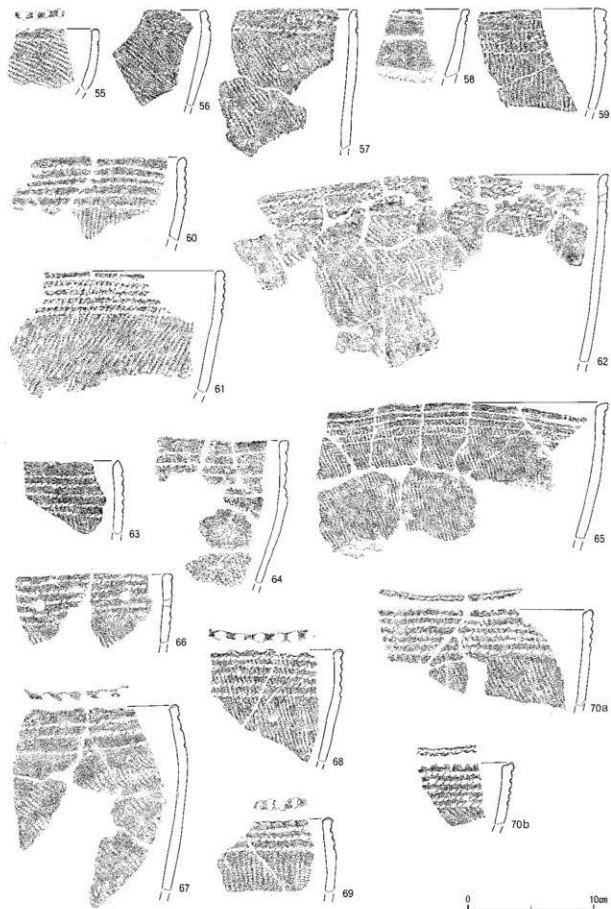 55
56
57
58
59
60
61
62
63
64
65
66
67
68
69
70a
70b
0 10cm